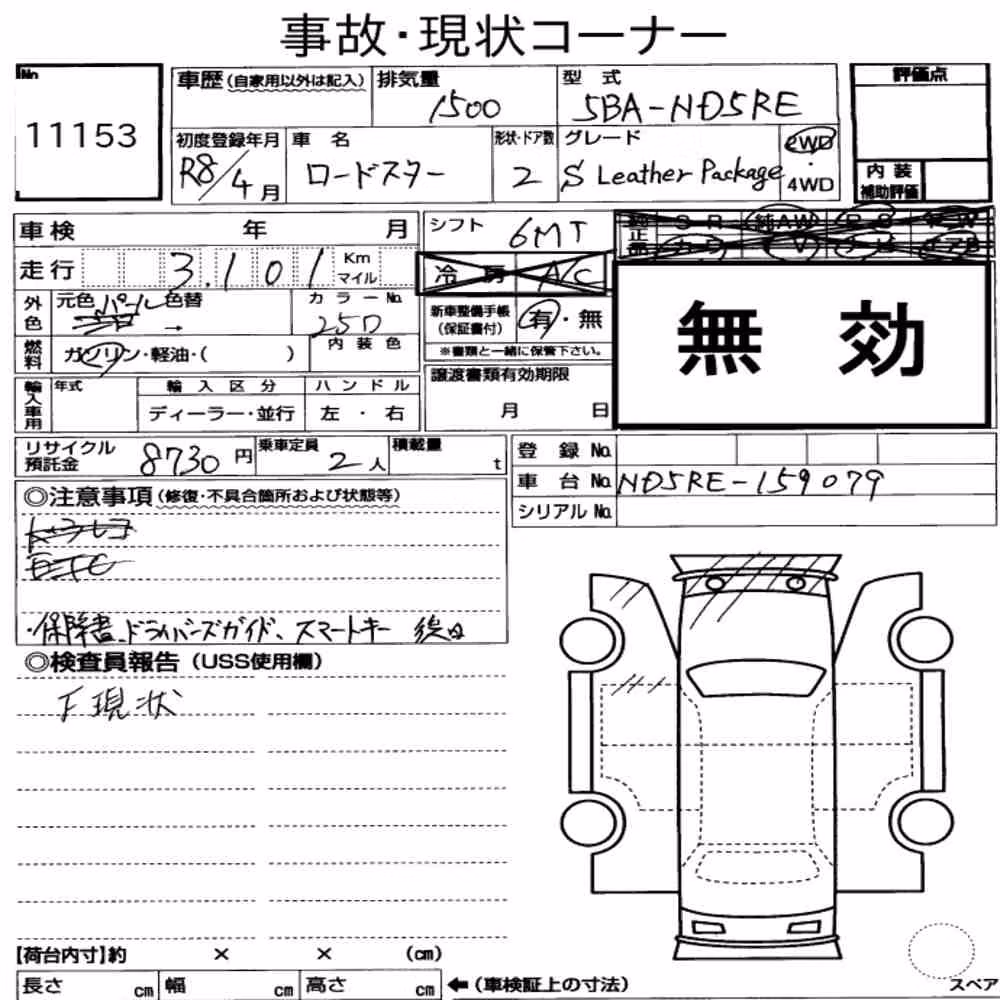 事故・現状コーナー
No 11153
車歴(自家用以外は記入) 排気量 1500 型式 5BA-ND5RE 評価点
初度登録年月 R8/4月 車名 ロードスター 形状・ドア数 2 グレード S Leather Package 2WD・4WD
内装補助評価
車検 年 月 シフト 6MT
走行 3,101 Km マイル 冷房 A/C
外色 元色 パール 色替 → カラーNo. 25D 新車整備手帳(保証書付) 有・無
※書類と一緒に保管下さい。
燃料 ガソリン・軽油・( ) 内装色
無効
輸入車用 年式 輸入区分 ハンドル 譲渡書類有効期限
ディーラー・並行 左・右 月 日
リサイクル預託金 8730円 乗車定員 2人 積載量 t 登録No.
車台No. ND5RE-159079
◎注意事項(修復・不具合箇所および状態等) シリアルNo.
ETC
・保障書、ドライバーズガイド、スマートキー 後日
◎検査員報告(USS使用欄)
F現状
【荷台内寸】約 × × (cm)
長さ cm 幅 cm 高さ cm ←(車検証上の寸法) スペア